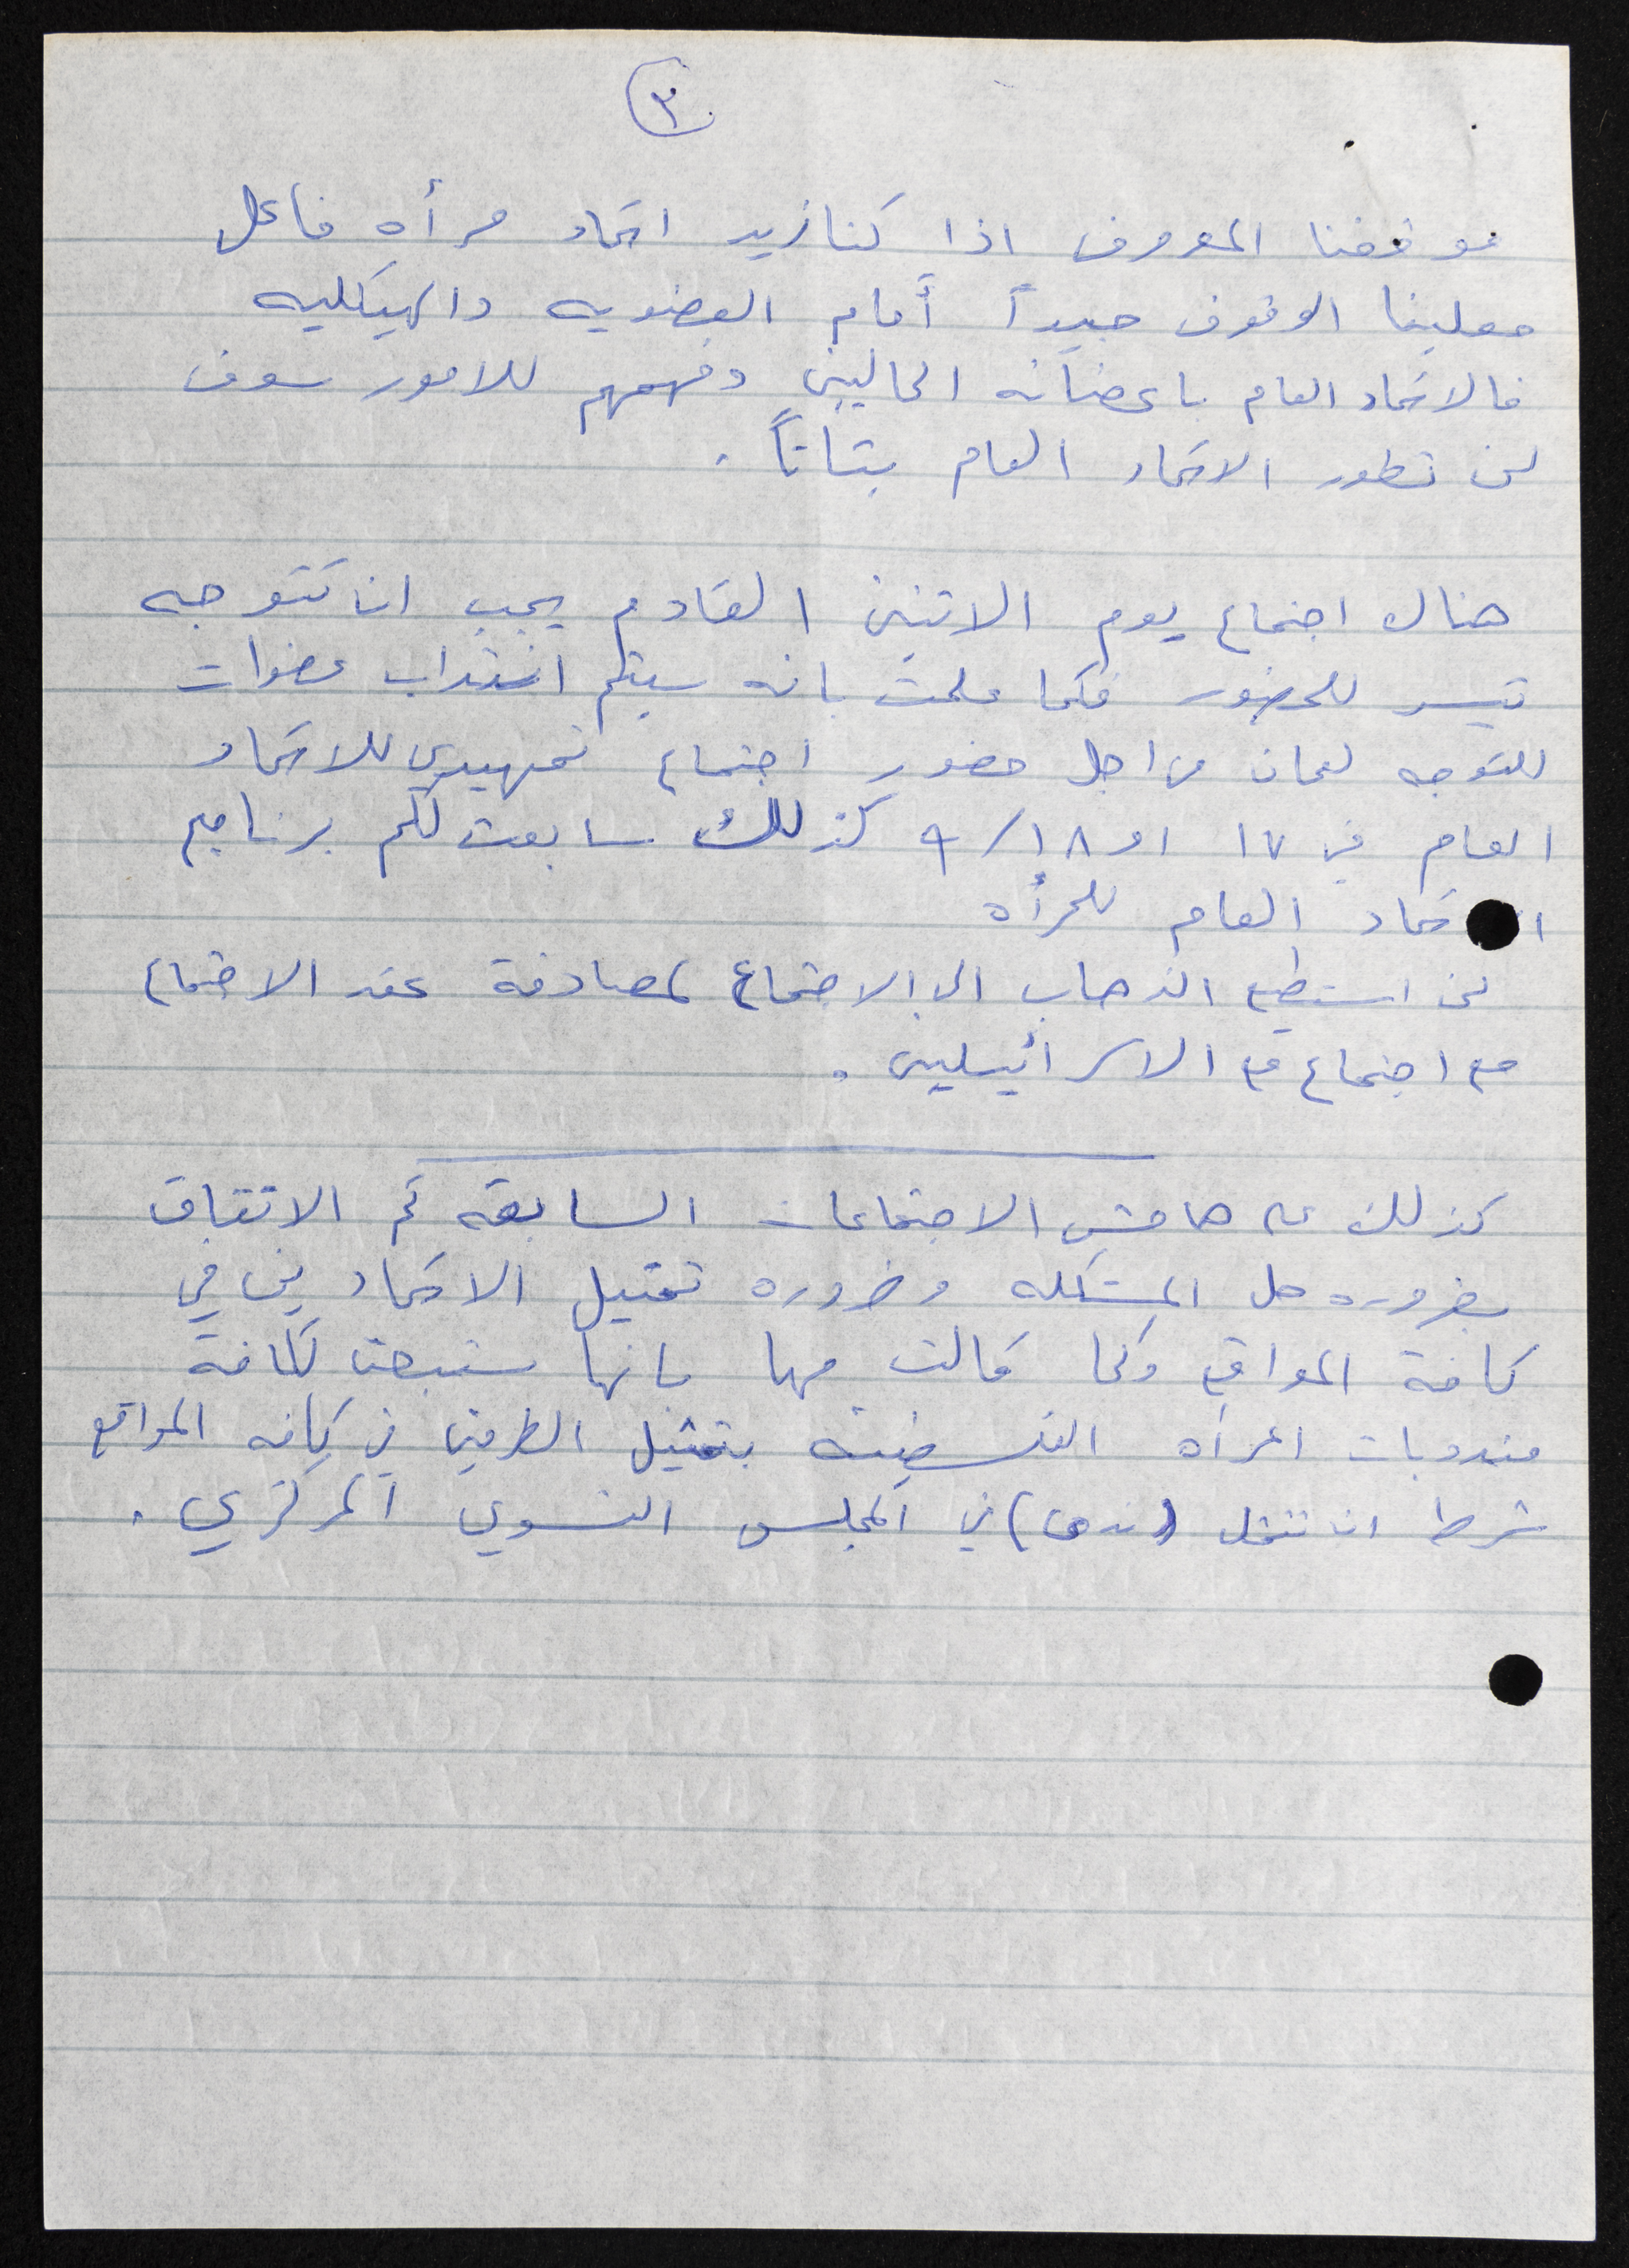 ٣
موقفنا المعروف اذا كنا نريد اتحاد مرأه فاعل
فعلينا الوقوف جيداً أمام العضويه والهيكليه
فالاتحاد العام باعضائه الحاليين وفهمهم للامور سوف
لن تطور الاتحاد العام بتاتاً .
هناك اجتماع يوم الاثنين القادم يجب ان تتوجه
تيسر للحضور فكما علمت بانه سيتم انتداب عضوات
للتوجه لعمان من اجل حضور اجتماع تمهيدي للاتحاد
العام في ١٧ او ١٨/٩ كذلك سابعث لكم برنامج
الاتحاد العام للمرأه
لن استطيع الذهاب الى الاجتماع لمصادفة عقد الاجتماع
مع اجتماع مع الاسرائيليين .
كذلك على هامش الاجتماعات السابقه تم الاتفاق
بضروره حل المشكله وضروره تمثيل الاتحادين في
كافة المواقع وكما قالت مها بانها ستبعث لكافة
مندوبات المرأه الفلسطينيه بتمثيل الطرفين في كافه المواقع
شرط ان تتمثل (ندى) في المجلس النسوي المركزي .